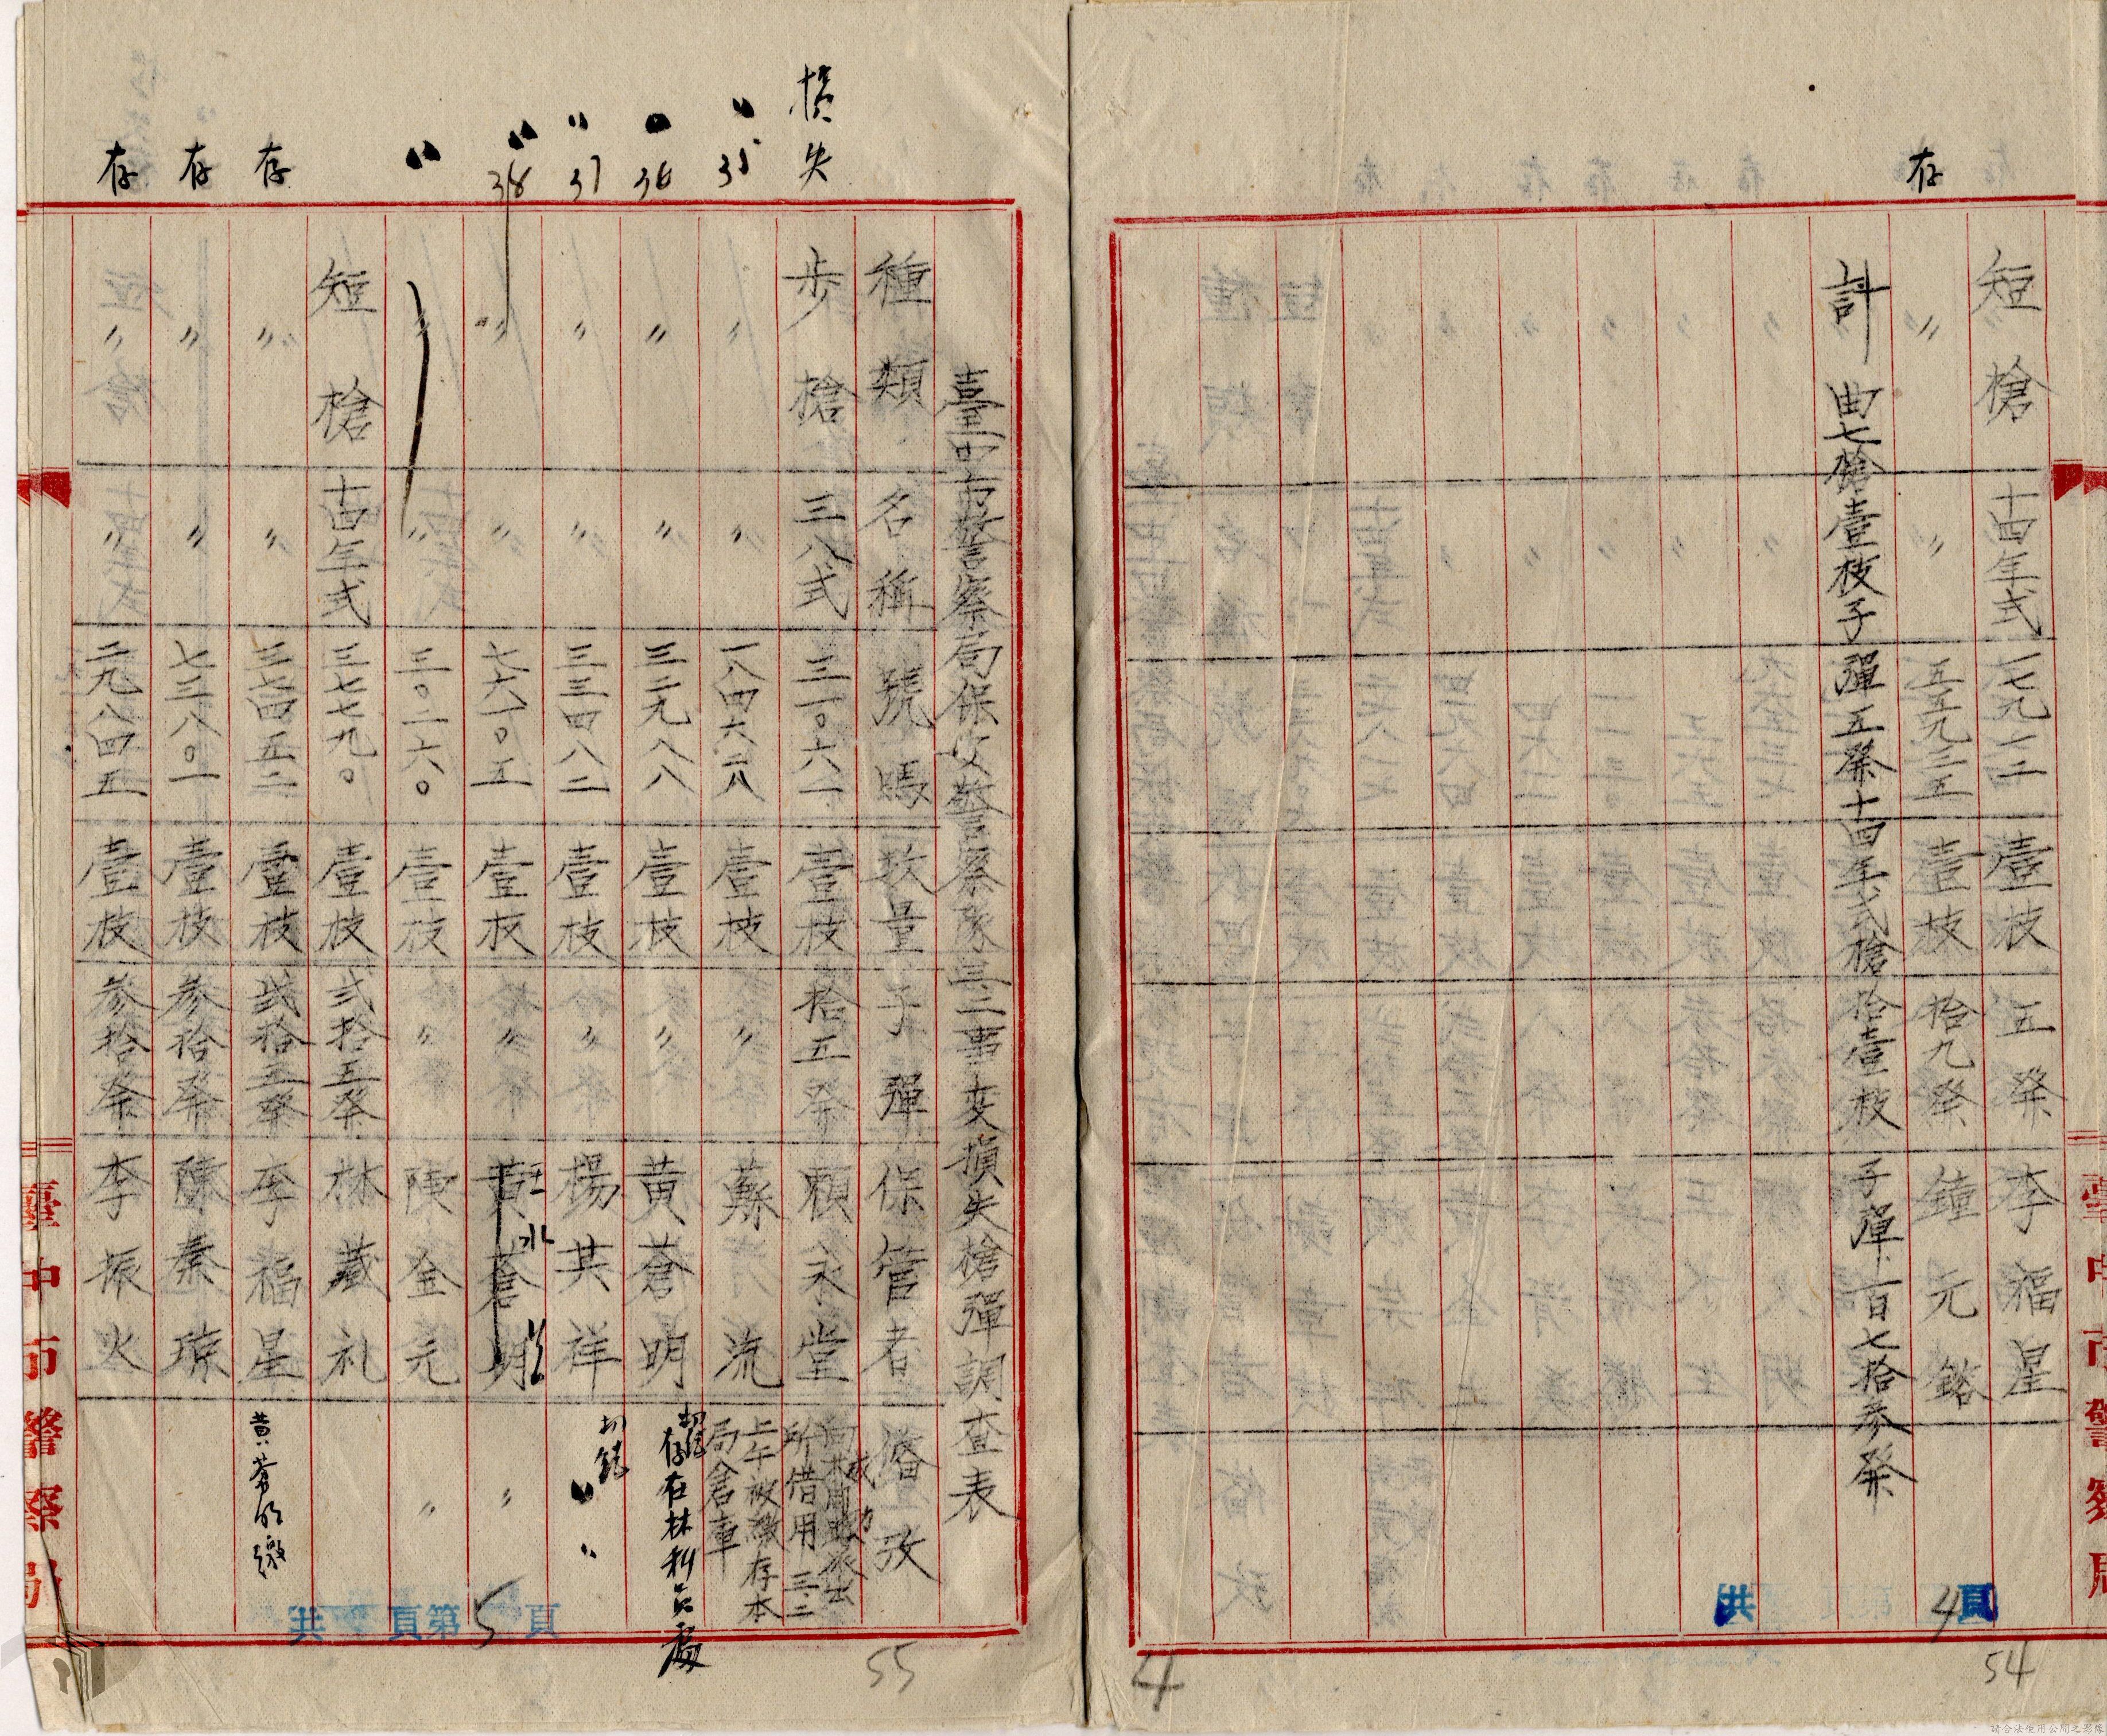 存
短槍 十四年式 一七九一二 壹枝 五發 李福星
〃 〃 五五九三五 壹枝 拾九發 鐘元鎔
計 曲七槍壹枝子彈五發十四年式槍拾壹枝子彈百七拾參發
共 頁 第 4 頁
54
4
臺中市警察局
臺中市警察局保安警察隊其二事変損失槍彈調查表
種類 名稱 號碼 數量 子彈 保管者 備攷
損失
步槍 三八式 三一〇六一 壹枝 拾五發 賴永堂
所借用 三、二
上午被繳存本
局倉庫
〃 35
〃 〃 一八四六二八 壹枝 〃 蘇流
36
〃 〃 三二九八八 壹枝 〃 黃蒼明 存在林利
〃 37
〃 〃 三三四八二 壹枝 〃 楊其祥 〃
〃 38
〃 〃 七六一〇五 壹枝 〃 黃蒼明 〃
〃
〃 〃 三〇二六〇 壹枝 〃 陳金元 〃
短槍 十四年式 三七七九〇 壹枝 弍拾五發 林藏礼
存
〃 〃 三七四五二 壹枝 弍拾五發 李福星 黃蒼明繳
存
〃 〃 七三八〇一 壹枝 參拾發 陳秦琼
存
〃 〃 二九八四五 壹枝 參拾發 李振火
共 頁第 5 頁
55
臺中市警察局
請合法使用公開之影像